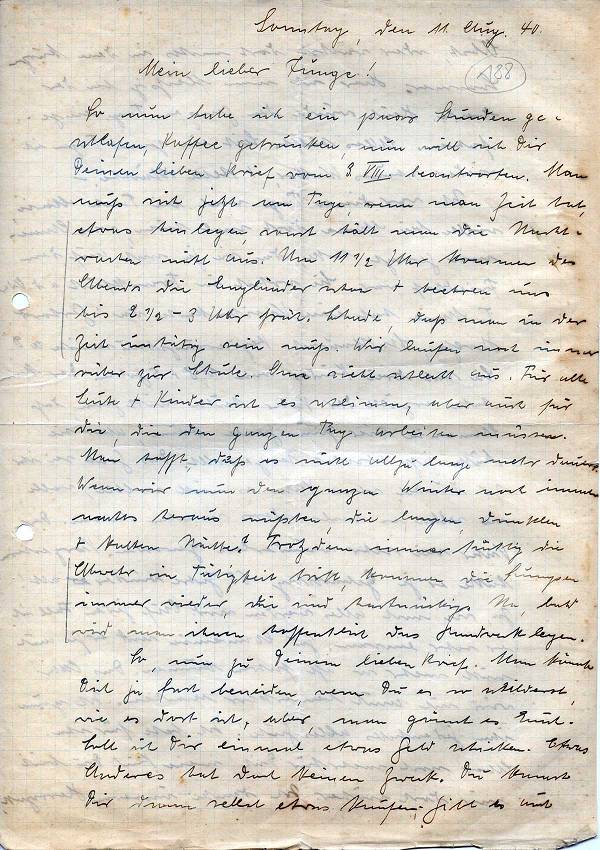 Sonntag, den 11. Aug. 40.
188
Mein lieber Junge!
So nun habe ich ein paar Stunden ge-
schlafen, Kaffee getrunken, nun will ich Dir
Deinen lieben Brief vom 8. VIII. beantworten. Man
muß sich jetzt am Tage, wenn man Zeit hat,
etwas hinlegen, sonst hält man die Nacht-
wachen nicht aus. Um 11 1/2 Uhr kommen des
Abends die Engländer schon + beehren uns
bis 2 1/2 – 3 Uhr früh. Schade, daß man in der
Zeit untätig sein muß. Wir laufen noch immer
rüber zur Schule. Ganz schlecht aus. Für alte
Leute + Kinder ist es schlimm, aber auch für
die, die den ganzen Tag arbeiten müssen.
Man hofft, daß es nicht allzu lange mehr dauert.
Wenn wir nun den ganzen Winter noch immer
nachts heraus müßten, die langen, dunklen
+ kalten Nächte? Trotzdem immer tüchtig die
Abwehr in Tätigkeit tritt, kommen die
immer wieder, die sind hartnäckig. Na, bald
wird man ihnen hoffentlich das Handwerk legen.
So, nun zu Deinem lieben Brief. Man könnte
Dich ja fast beneiden, wenn Du es so schilderst,
wie es dort ist, aber, man gönnt es Euch.
Soll ich Dir einmal etwas Geld schicken. Etwas
Anderes hat doch keinen Zweck. Du kannst
Dir dann selbst etwas kaufen; gibt es auch